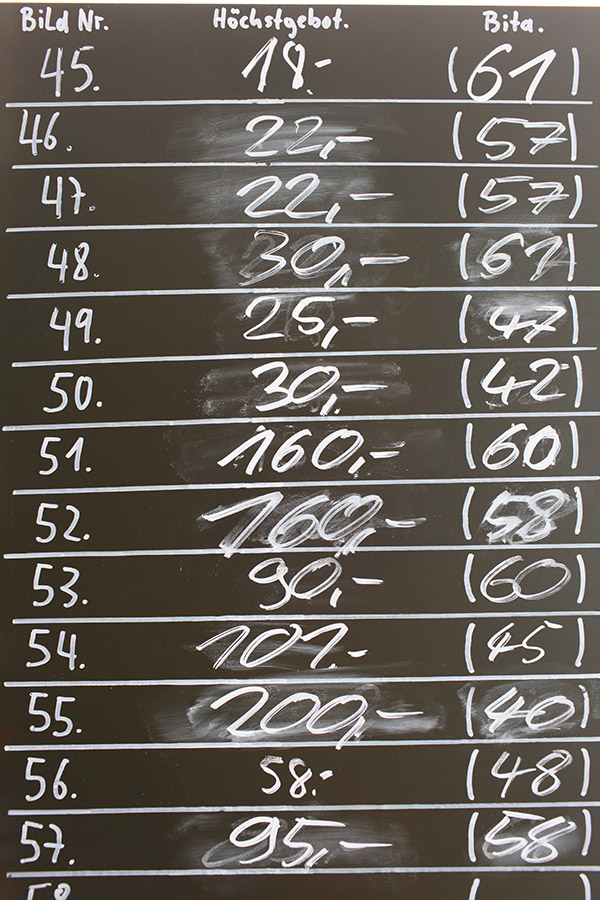 Bild Nr. Höchstgebot. Bita.
45. 18.- (61)
46. 22,- (57)
47. 22,- (57)
48. 30,- (61)
49. 25,- (47)
50. 30,- (42)
51. 160,- (60)
52. 160,- (58)
53. 90,- (60)
54. 101.- (45)
55. 200,- (40)
56. 58.- (48)
57. 95,- (58)